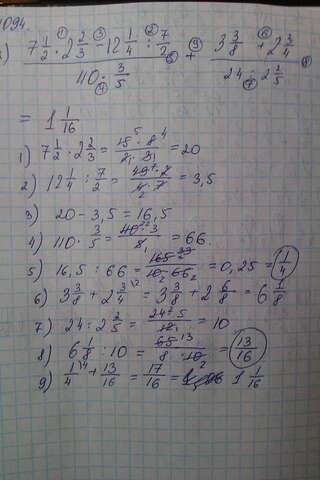 1094.
7 1/2 · 2 2/3 - 12 1/4 : 7/2 + 3 3/8 + 2 3/4
110 · 3/5 24 : 2 2/5
= 1 1/16
1) 7 1/2 · 2 2/3 = 15·8/2·3 = 20
2) 12 1/4 : 7/2 = 49·2/4·7 = 3,5
3) 20 - 3,5 = 16,5
4) 110 · 3/5 = = 66.
5) 16,5 : 66 = = 0,25 = 1/4
6) 3 3/8 + 2 3/4 = 3 3/8 + 2 6/8 = 6 1/8
7) 24 : 2 2/5 = 24·5/12 = 10
8) 6 1/8 : 10 = = 13/16
9) 1/4 + 13/16 = 17/16 = 1 1/16